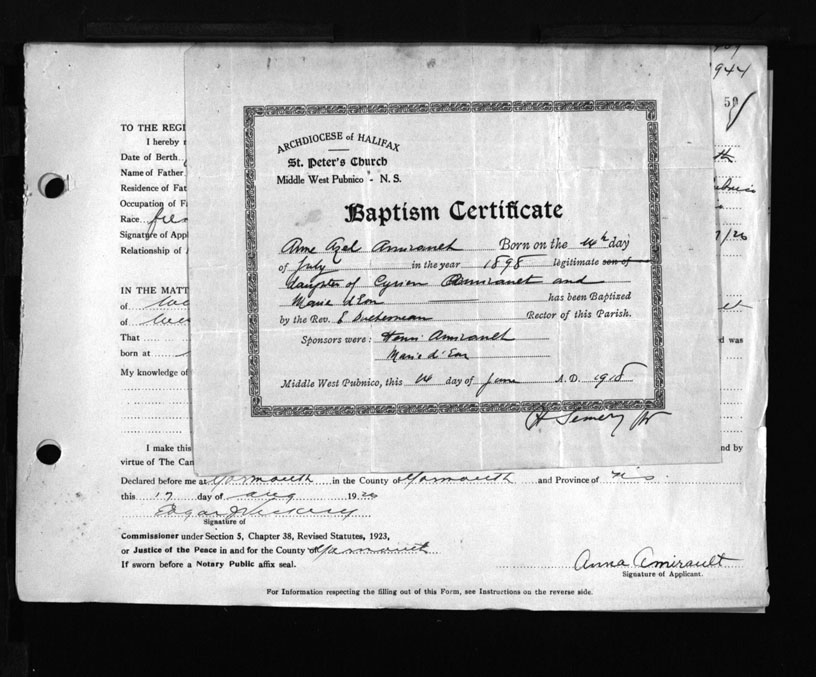 1944
59
TO THE REGI
I hereby
Date of Berth
Name of Father
Residence of Fat
Occupation of F
Race
Signature of Appl
Relationship of
IN THE MATT
of
of
That
born at
was
My knowledge of
ARCHDIOCESE of HALIFAX
St. Peter's Church
Middle West Pubnico - N. S.
Baptism Certificate
Anne Azel Amirault Born on the 14th day
of July in the year 1898 legitimate son of
daughter of Cyrien Amirault and
Marie d'Eon has been Baptized
by the Rev. E Rector of this Parish.
Sponsors were: Amirault
Marie d'Eon
Middle West Pubnico, this 14 day of June A. D. 1918
I make this
nd by
virtue of The Can
Declared before me at Yarmouth in the County of Yarmouth and Province of N.S.
this 17 day of Aug 1926
Edgar J Vickery
Signature of
Commissioner under Section 5, Chapter 38, Revised Statutes, 1923,
or Justice of the Peace in and for the County of Yarmouth
If sworn before a Notary Public affix seal.
Anna Amirault
Signature of Applicant.
For Information respecting the filling out of this Form, see Instructions on the reverse side.